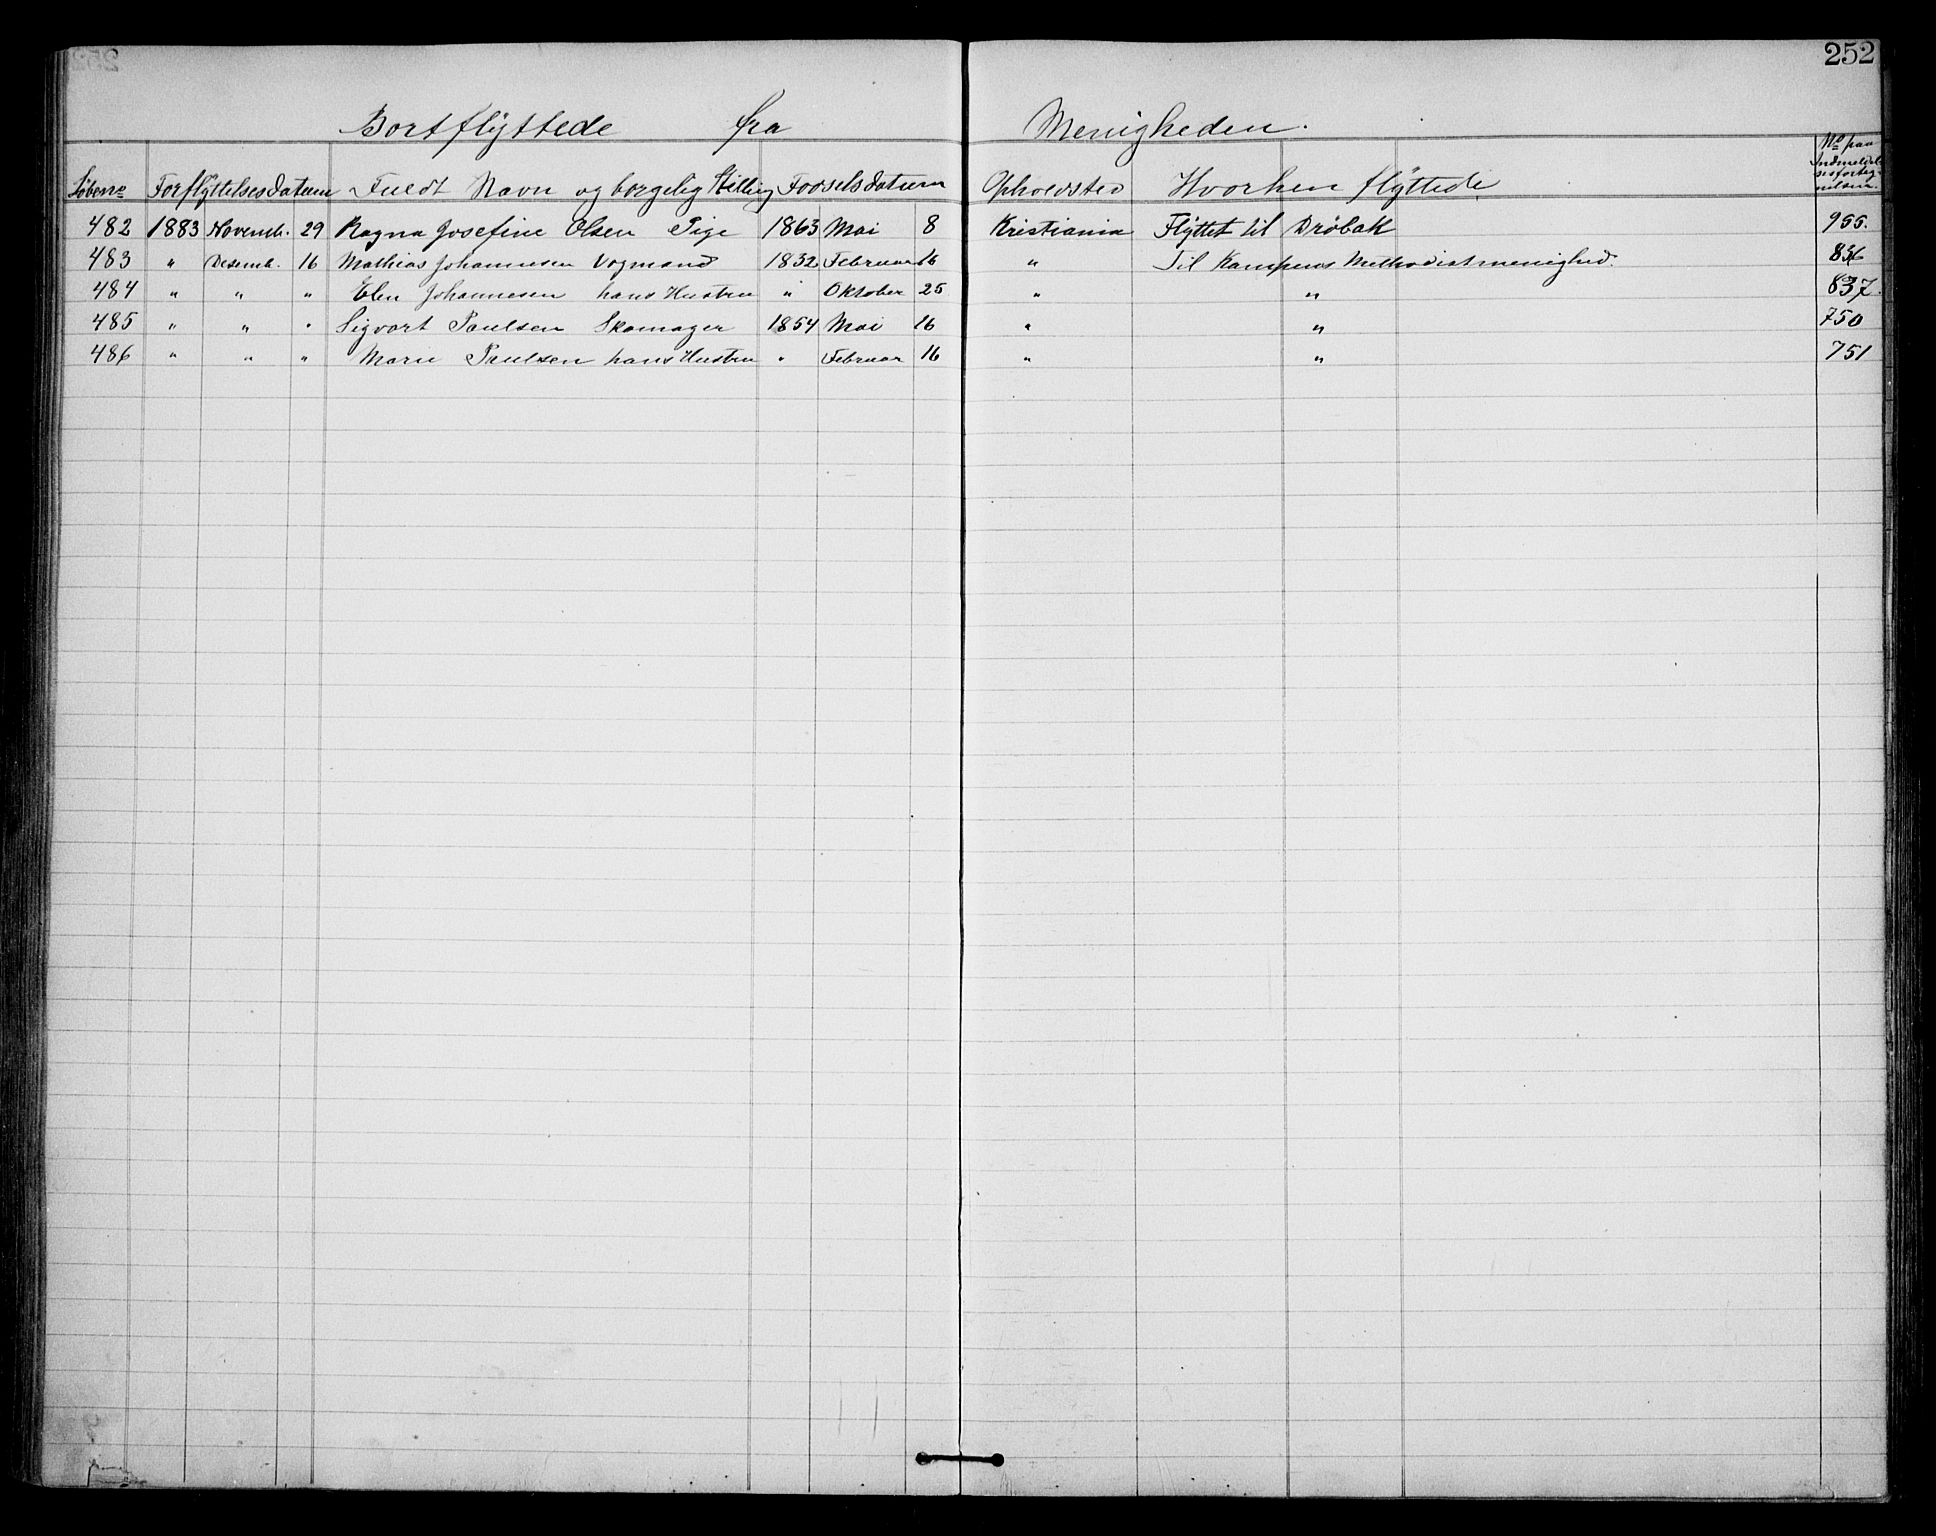 252
Bortflyttede fra Menigheden.
Løbeno Forflyttelsesdatum Fuldt Navn og borgelig Stilling Fodselsdatum Opholdsted Hvorhen flyttede No paa Indmeldelsesfortegnelsen.
482 1883 Novemb. 29 Ragna Josefine Olsen Pige 1863 Mai 8 Kristiania Flyttet til Drøbak 955.
483 " Desemb. 16 Mathias Johannesen Vogmand 1832 Februar 16 " Til Kampens Methodistmenighed. 836
484 " " " Elen Johannesen hans Hustru " Oktober 25 " " 837.
485 " " " Sigvart Paulsen Skomager 1854 Mai 16 " " 750
486 " " " Marie Paulsen hans Hustru " Februar 16 " " 751